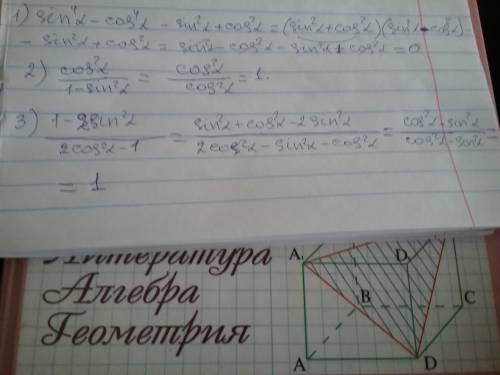 1) sin⁴α - cos⁴α - sin²α + cos²α = (sin²α + cos²α)(sin²α - cos²α) -
- sin²α + cos²α = sin²α - cos²α - sin²α + cos²α = 0
2) cos²α / 1 - sin²α = cos²α / cos²α = 1.
3) 1 - 2sin²α / 2cos²α - 1 = sin²α + cos²α - 2sin²α / 2cos²α - sin²α - cos²α = cos²α - sin²α / cos²α - sin²α =
= 1
Литература
Алгебра
Геометрия
A₁
D₁
B
C
A
D